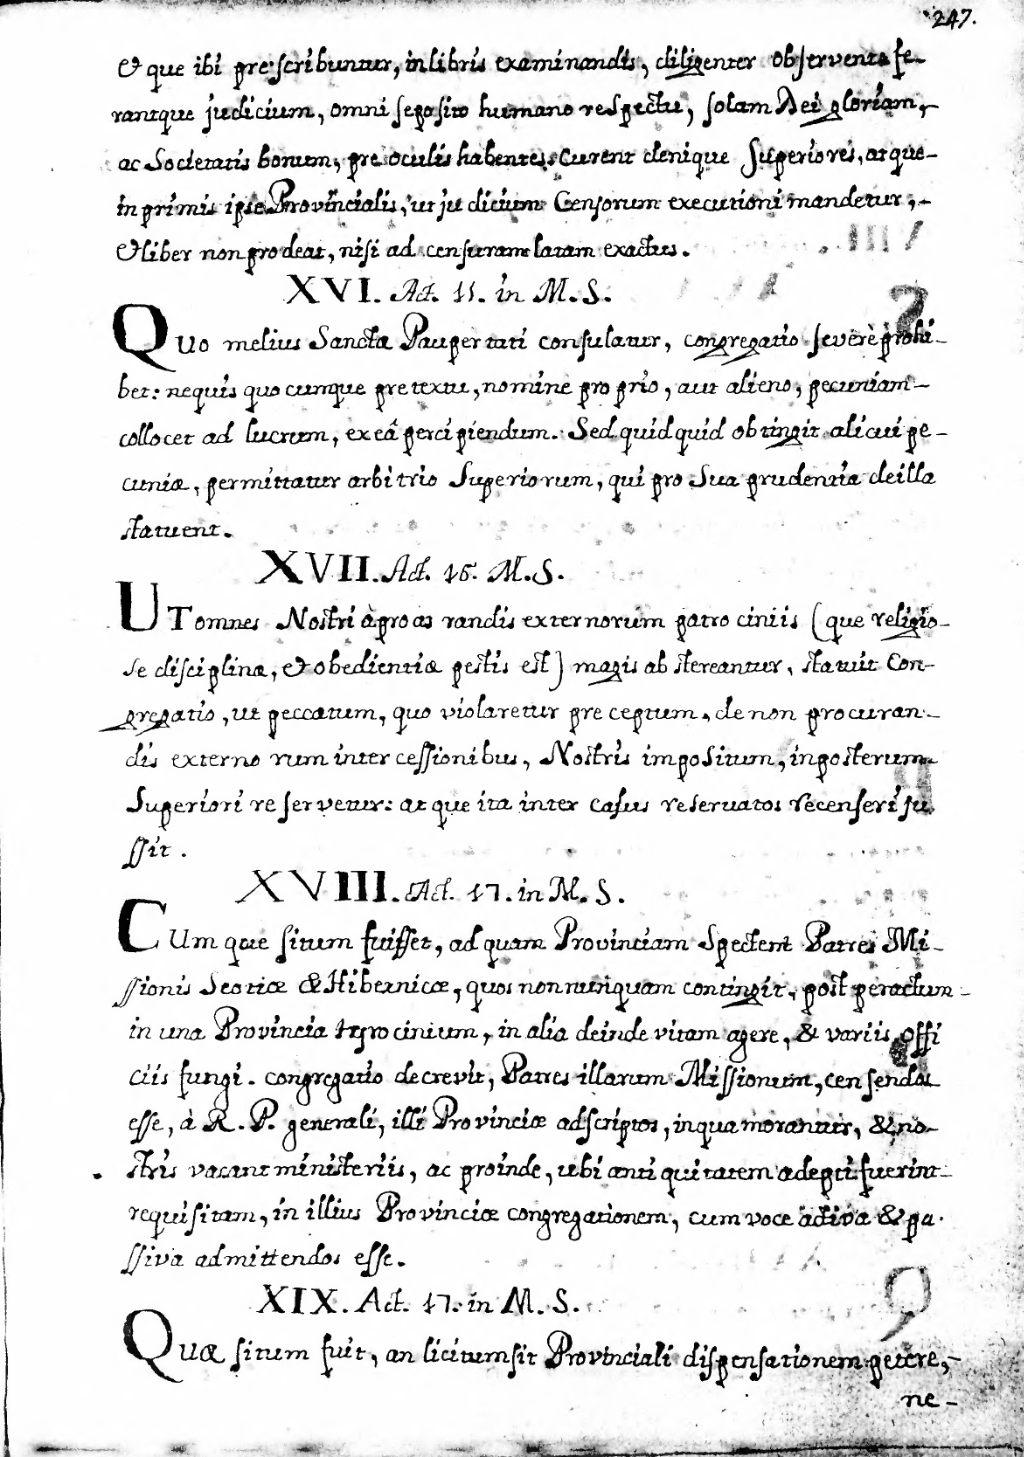 247.
& que ibi prescribuntur, in libris examinandis, diligenter observent, fe-
rantque judicium, omni seposito humano respectu, solam Dei gloriam,-
ac Societatis bonum, pre oculis habentes. Curent denique Superiores, atque-
in primis ipse Provincialis, ut judicium Censorum executioni mandetur,-
& liber non prodeat, nisi ad censuram latam exactus.
XVI. Act. 11. in M.S.
QUo melius Sancta Paupertati consulatur, congregatio severè prohi-
bet: nequis quocumque pretextu, nomine proprio, aut alieno, pecuniam-
collocet ad lucrum, ex eâ percipiendum. Sed quidquid obtingit alicui pe-
cuniæ, permittatur arbitrio Superiorum, qui pro Sua prudentia de illa
statuent.
XVII. Act. 16. M.S.
UT omnes Nostri à proas randis externorum patrociniis (que religio-
se disciplinæ, & obedientiæ pestis est) magis abstereantur, statuit Con-
gregatio, ut peccatum, quo violaretur preceptum, de non procuran-
dis externorum intercessionibus, Nostris impositum, in posterum-
Superiori reservetur: atque ita inter casus reservatos recenseri ju
ssit.
XVIII. Act. 17. in M.S.
CUm que situm fuisset, ad quam Provinciam Spectent Patres Mi-
ssionis Scoticæ & Hibernicæ, quos nonnunquam contingit, post peractum-
in una Provincia tyrocinium, in alia deinde vitam agere, & variis offi
ciis fungi. congregatio decrevit, Patres illarum Missionum, censendos
esse, à R.P. generali, illi Provinciæ adscriptos, in qua morantur, & no-
stris vacant ministeriis, ac proinde, ubi antiquitatem adepti fuerint-
requisitam, in illius Provinciæ congregationem, cum voce activa & pa-
ssiva admittendos esse.
XIX. Act. 17. in M.S.
QUæ situm fuit, an licitum sit Provinciali dispensationem petere,-
ne-